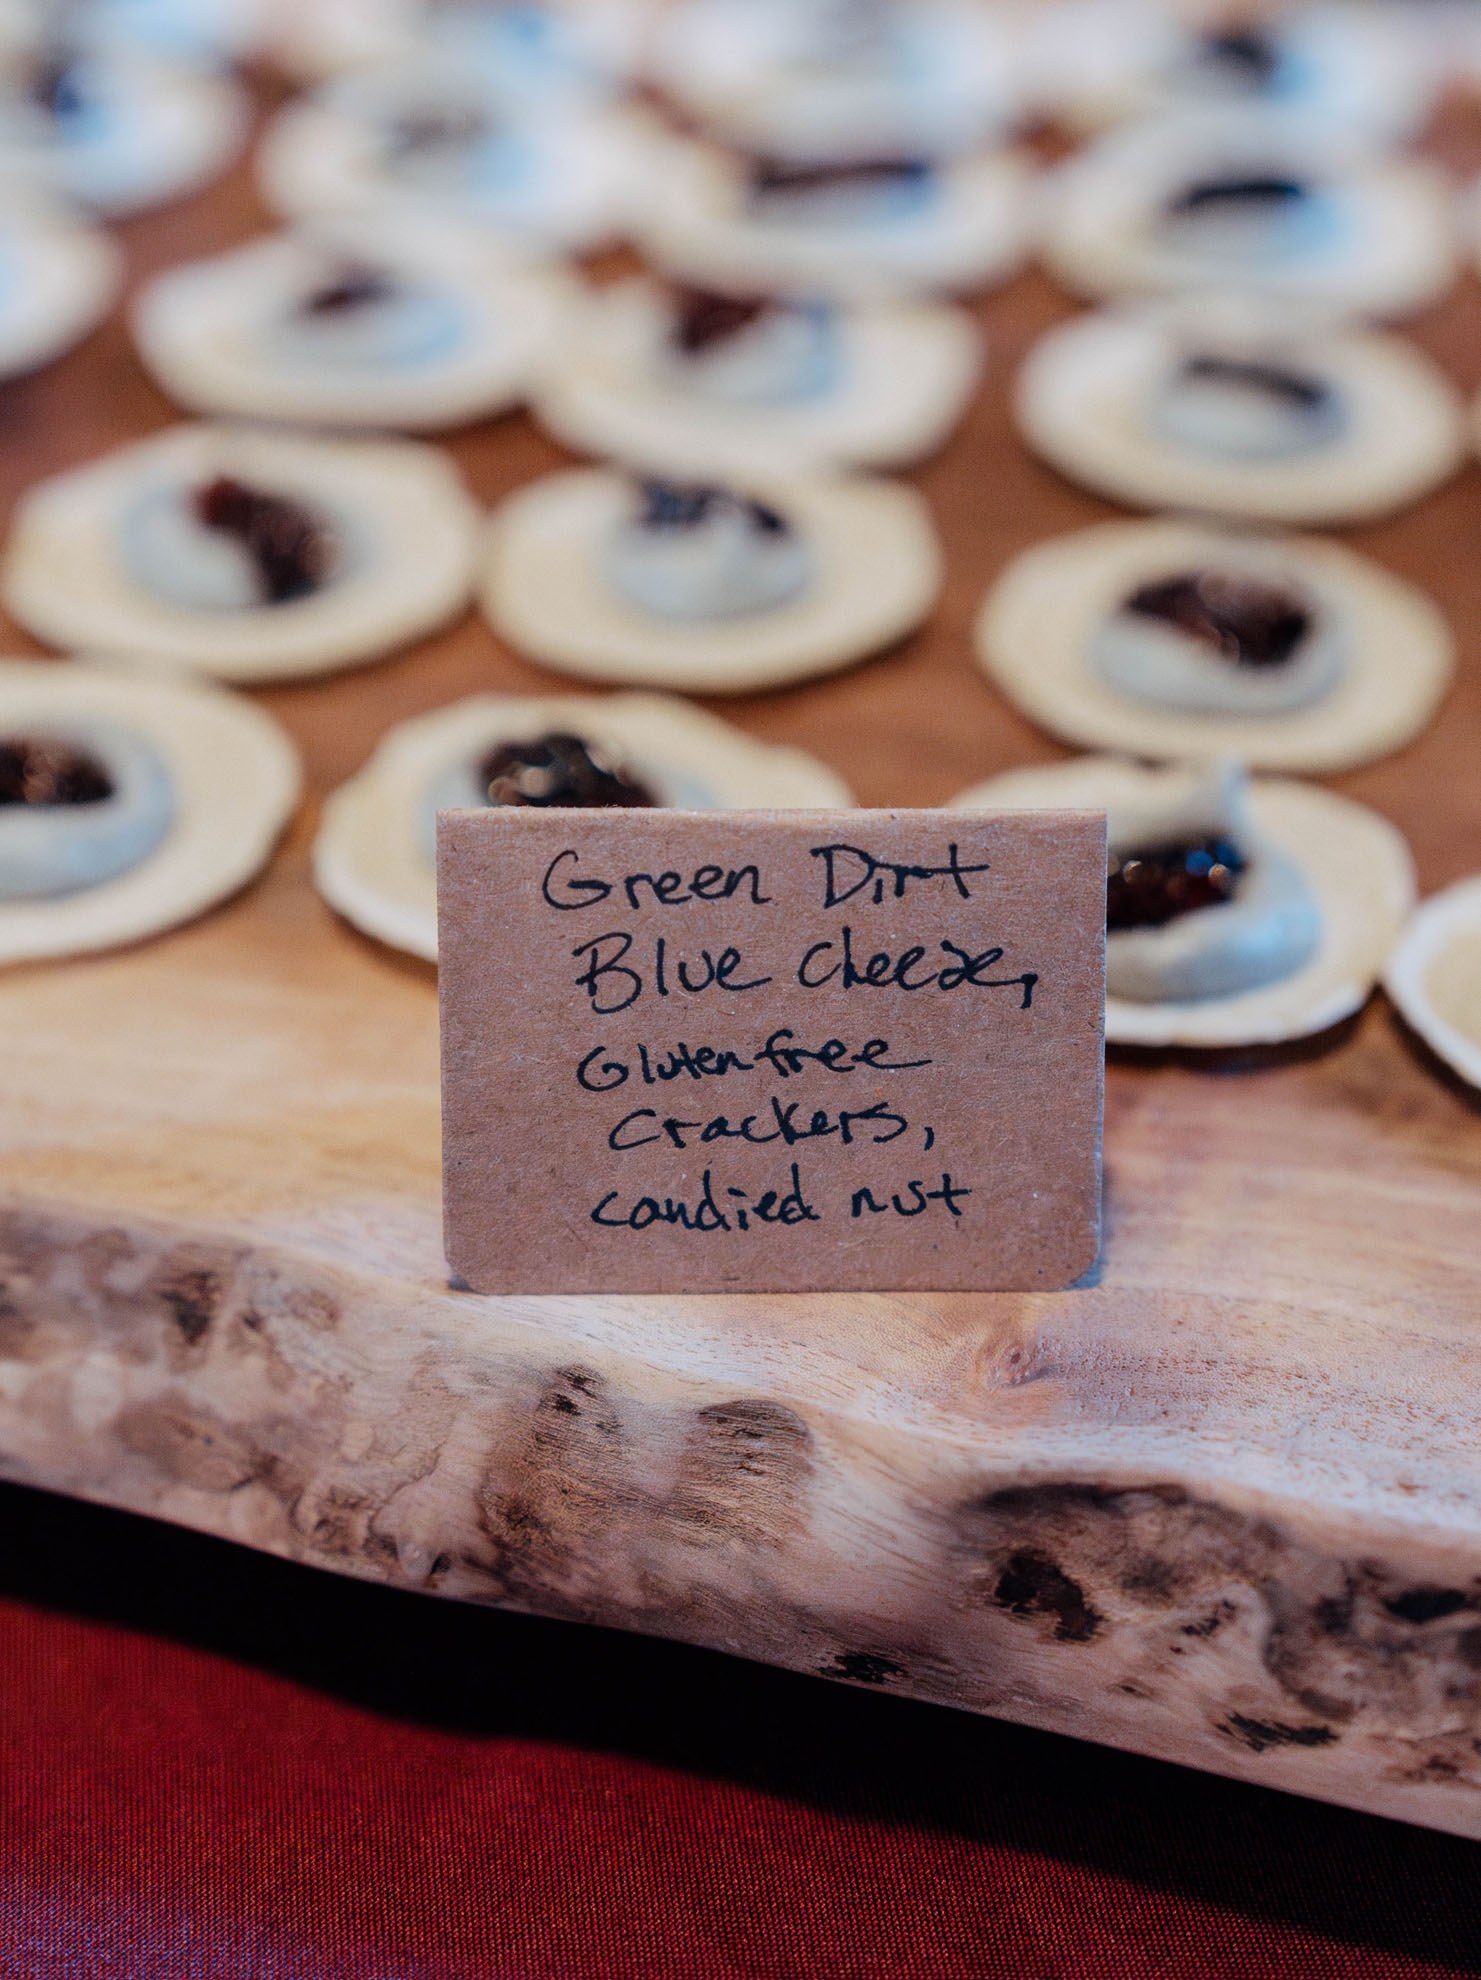 Green Dirt
Blue Cheese,
Gluten free
Crackers,
candied nut